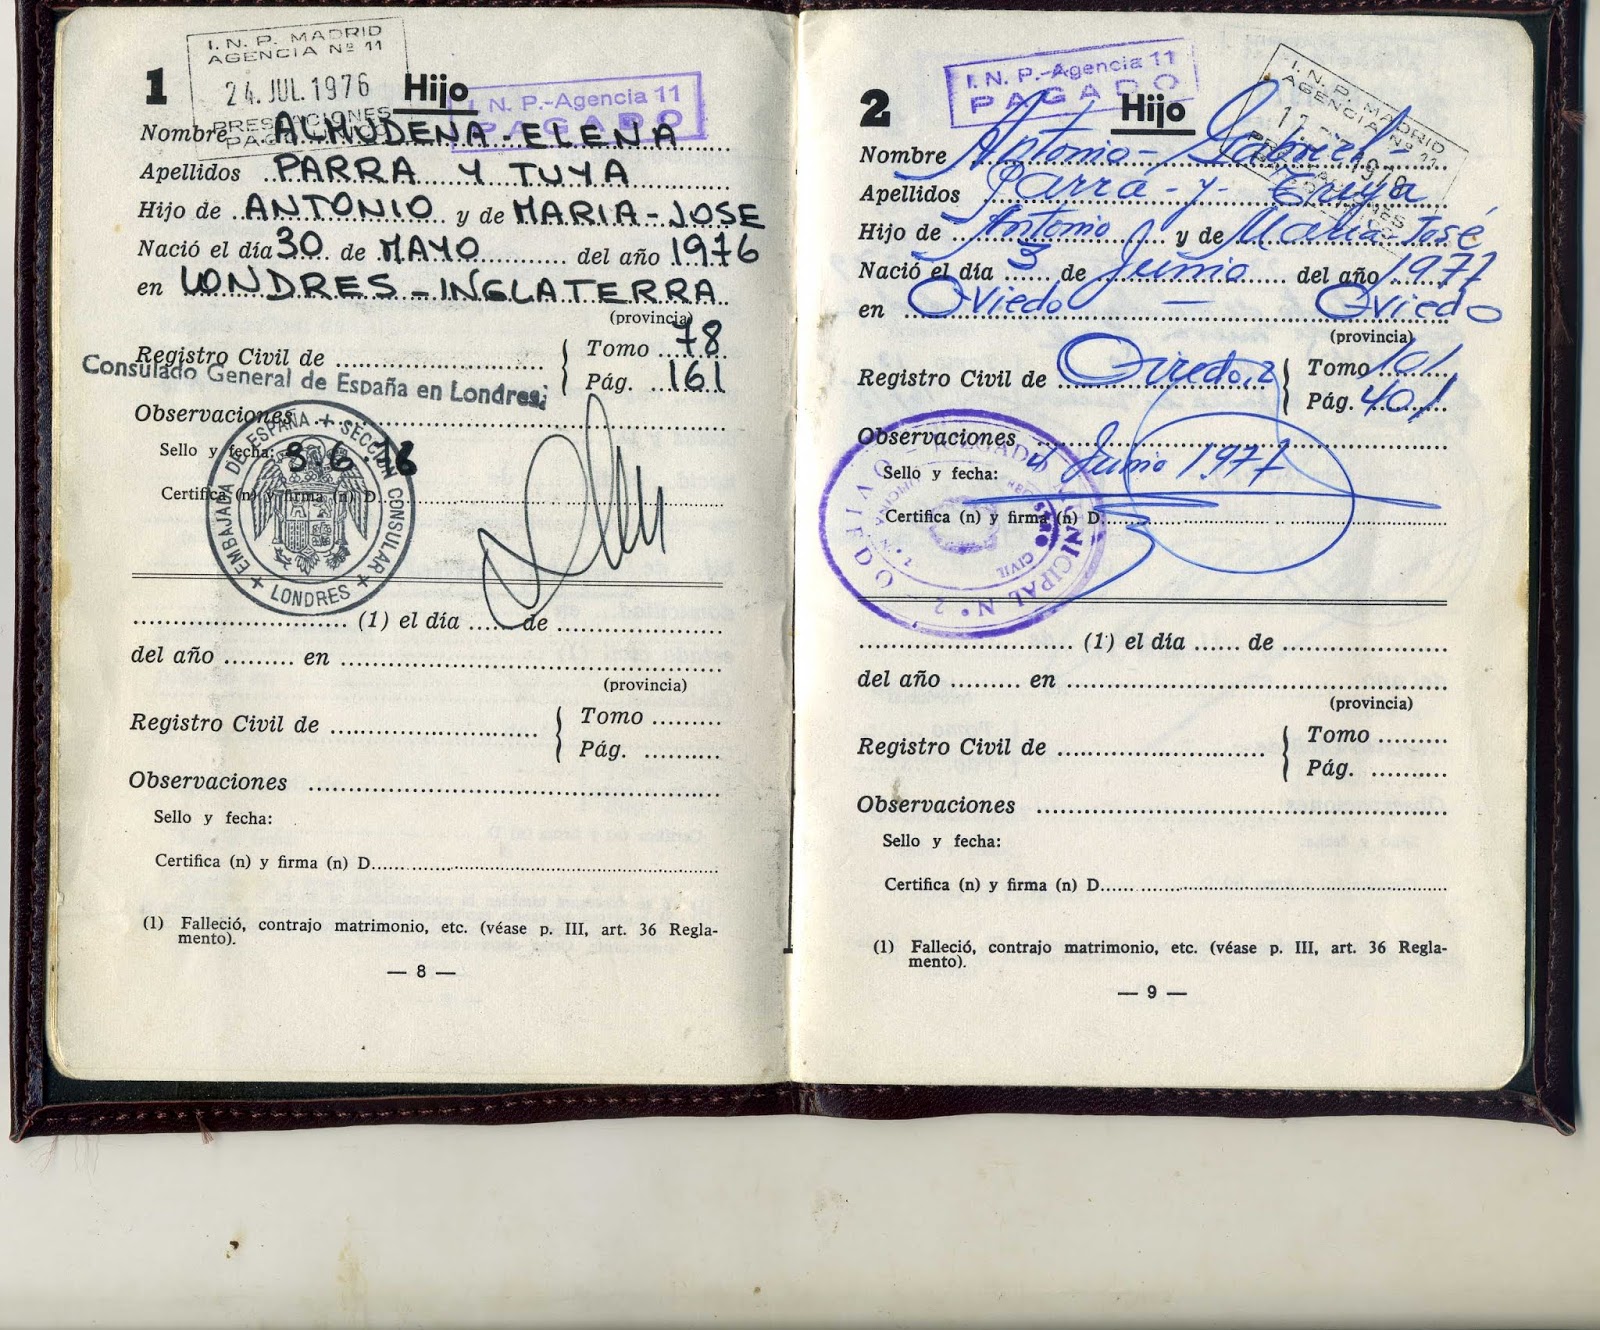 I. N. P. MADRID
AGENCIA Nº 11
24. JUL. 1976
PRESTACIONES
I. N. P.-Agencia 11
PAGADO
1
Hijo
Nombre ALMUDENA-ELENA
Apellidos PARRA Y TUYA
Hijo de ANTONIO y de MARIA-JOSE
Nació el día 30 de MAYO del año 1976
en LONDRES-INGLATERRA
(provincia)
Registro Civil de
Tomo 78
Consulado General de España en Londres
Pág. 161
Observaciones
Sello y fecha: 3.6.76
Certifica (n) y firma (n) D.
EMBAJADA DE ESPAÑA + SECCION CONSULAR + LONDRES +
(1) el día de
del año en
(provincia)
Registro Civil de
Tomo
Pág.
Observaciones
Sello y fecha:
Certifica (n) y firma (n) D.
(1) Falleció, contrajo matrimonio, etc. (véase p. III, art. 36 Regla-
mento).
— 8 —
I. N. P.-Agencia 11
PAGADO
I. N. P. MADRID
AGENCIA Nº 11
2
Hijo
Nombre Antonio-Gabriel-
Apellidos Parra-y-Tuya
Hijo de Antonio y de María-José
Nació el día 3 de Junio del año 1977
en Oviedo — Oviedo
(provincia)
Registro Civil de Oviedo, 2
Tomo 101
Pág. 401
Observaciones
Sello y fecha: 4 Junio 1.977
Certifica (n) y firma (n) D.
JUZGADO MUNICIPAL Nº 2 OVIEDO
REGISTRO CIVIL
(1) el día de
del año en
(provincia)
Registro Civil de
Tomo
Pág.
Observaciones
Sello y fecha:
Certifica (n) y firma (n) D.
(1) Falleció, contrajo matrimonio, etc. (véase p. III, art. 36 Regla-
mento).
— 9 —